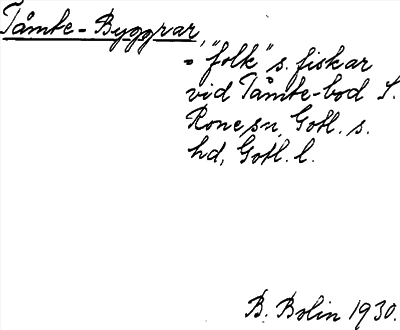 Tåmte-Byggvar,
= "folk" s. fiskar
vid Tåmte-bod L.
Rone sn, Gotl. s.
hd, Gotl. l.
B. Bolin 1930.